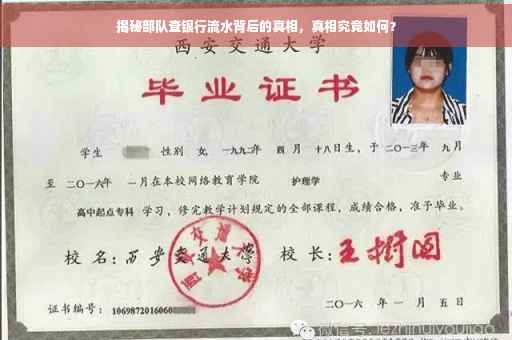 揭秘部队查银行流水背后的真相，真相究竟如何？
西安交通大学
毕业证书
学生 性别 女，一九九二年 四 月 十八日生，于 二〇一三年 九月
至 二〇一六年 一月在本校网络教育学院 护理学 专业
高中起点专科 学习，修完教学计划规定的全部课程，成绩合格，准予毕业。
校 名：西安交通大学 校 长：王树国
西安交通大学
证书编号：1069872016060
二〇一六 年 一 月 五 日
微信号：jezhihuiyoujiao